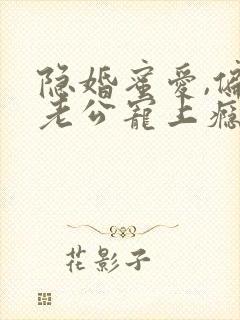 隐婚蜜爱,偏
老公宠上瘾
花影子